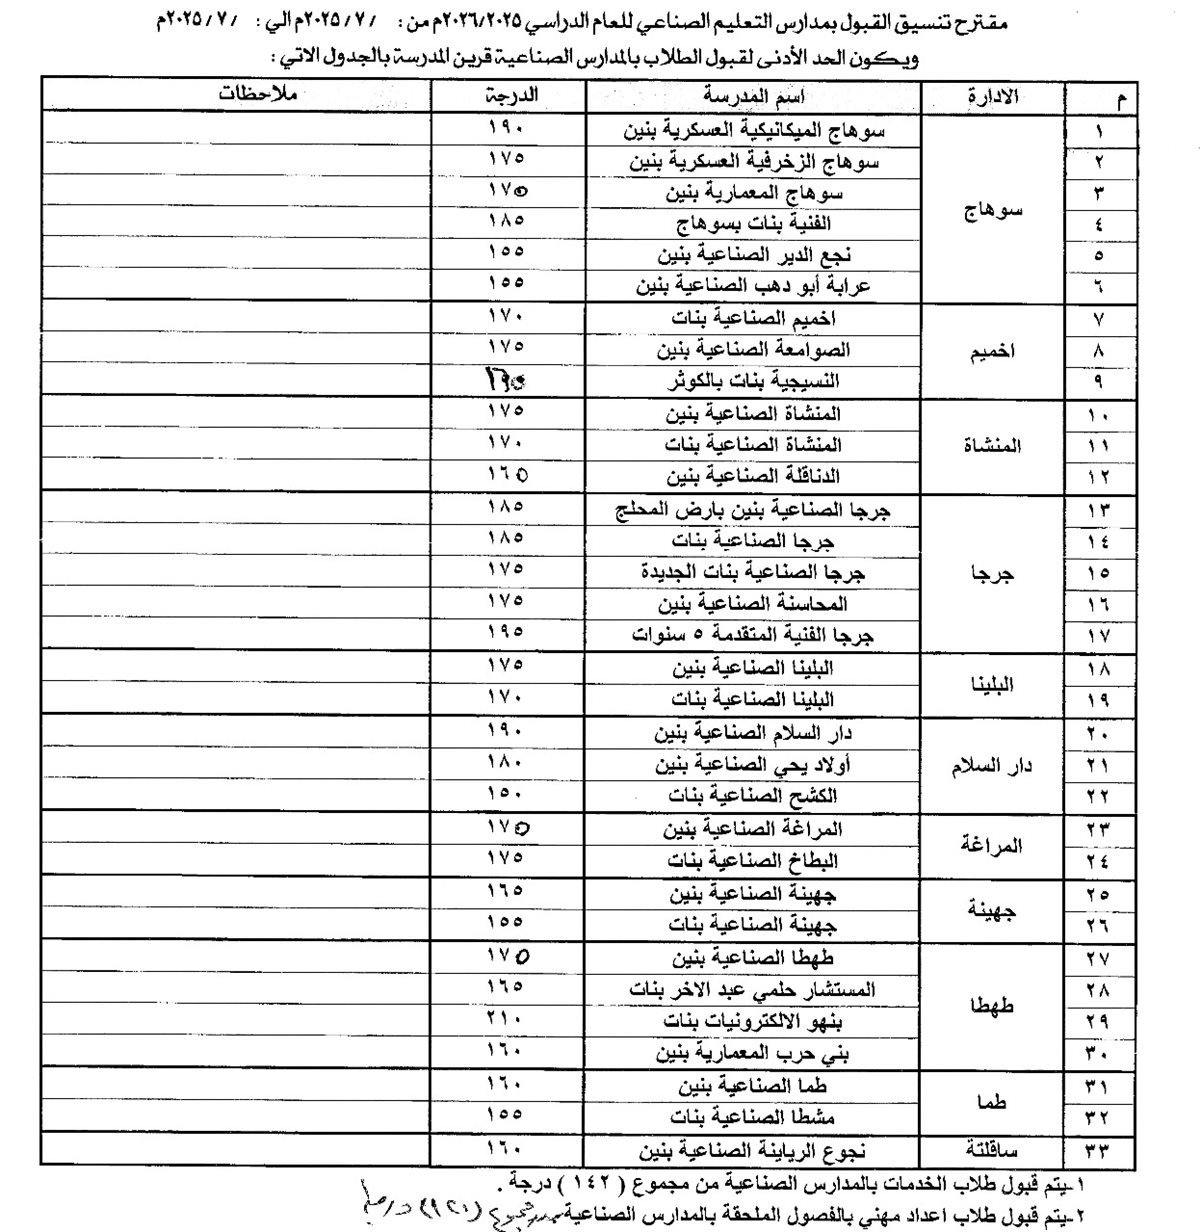 مقترح تنسيق القبول بمدارس التعليم الصناعي للعام الدراسي ٢٠٢٦/٢٠٢٥م من : / ٧ / ٢٠٢٥م الي : / ٧ / ٢٠٢٥م
ويكون الحد الأدنى لقبول الطلاب بالمدارس الصناعية قرين المدرسة بالجدول الاتي :
م الادارة اسم المدرسة الدرجة ملاحظات
١ سوهاج سوهاج الميكانيكية العسكرية بنين ١٩٠
٢ سوهاج الزخرفية العسكرية بنين ١٧٥
٣ سوهاج المعمارية بنين ١٧٥
٤ الفنية بنات بسوهاج ١٨٥
٥ نجع الدير الصناعية بنين ١٥٥
٦ عرابة أبو دهب الصناعية بنين ١٥٥
٧ اخميم اخميم الصناعية بنات ١٧٠
٨ الصوامعة الصناعية بنين ١٧٥
٩ النسيجية بنات بالكوثر
١٠ المنشاة المنشاة الصناعية بنين ١٧٥
١١ المنشاة الصناعية بنات ١٧٠
١٢ الدناقلة الصناعية بنين ١٦٥
١٣ جرجا جرجا الصناعية بنين بارض المحلج ١٨٥
١٤ جرجا الصناعية بنات ١٨٥
١٥ جرجا الصناعية بنات الجديدة ١٧٥
١٦ المحاسنة الصناعية بنين ١٧٥
١٧ جرجا الفنية المتقدمة ٥ سنوات ١٩٥
١٨ البلينا البلينا الصناعية بنين ١٧٥
١٩ البلينا الصناعية بنات ١٧٠
٢٠ دار السلام دار السلام الصناعية بنين ١٩٠
٢١ أولاد يحي الصناعية بنين ١٨٠
٢٢ الكشح الصناعية بنات ١٥٠
٢٣ المراغة المراغة الصناعية بنين ١٧٥
٢٤ البطاخ الصناعية بنات ١٧٥
٢٥ جهينة جهينة الصناعية بنين ١٦٥
٢٦ جهينة الصناعية بنات ١٥٥
٢٧ طهطا طهطا الصناعية بنين ١٧٥
٢٨ المستشار حلمي عبد الاخر بنات ١٦٥
٢٩ بنهو الالكترونيات بنات ٢١٠
٣٠ بني حرب المعمارية بنين ١٦٠
٣١ طما طما الصناعية بنين ١٦٠
٣٢ مشطا الصناعية بنات ١٥٥
٣٣ ساقلتة نجوع الرياينة الصناعية بنين ١٦٠
١-يتم قبول طلاب الخدمات بالمدارس الصناعية من مجموع ( ١٤٢ ) درجة .
٢-يتم قبول طلاب اعداد مهني بالفصول الملحقة بالمدارس الصناعية من مجموع (١٢٠) درجة